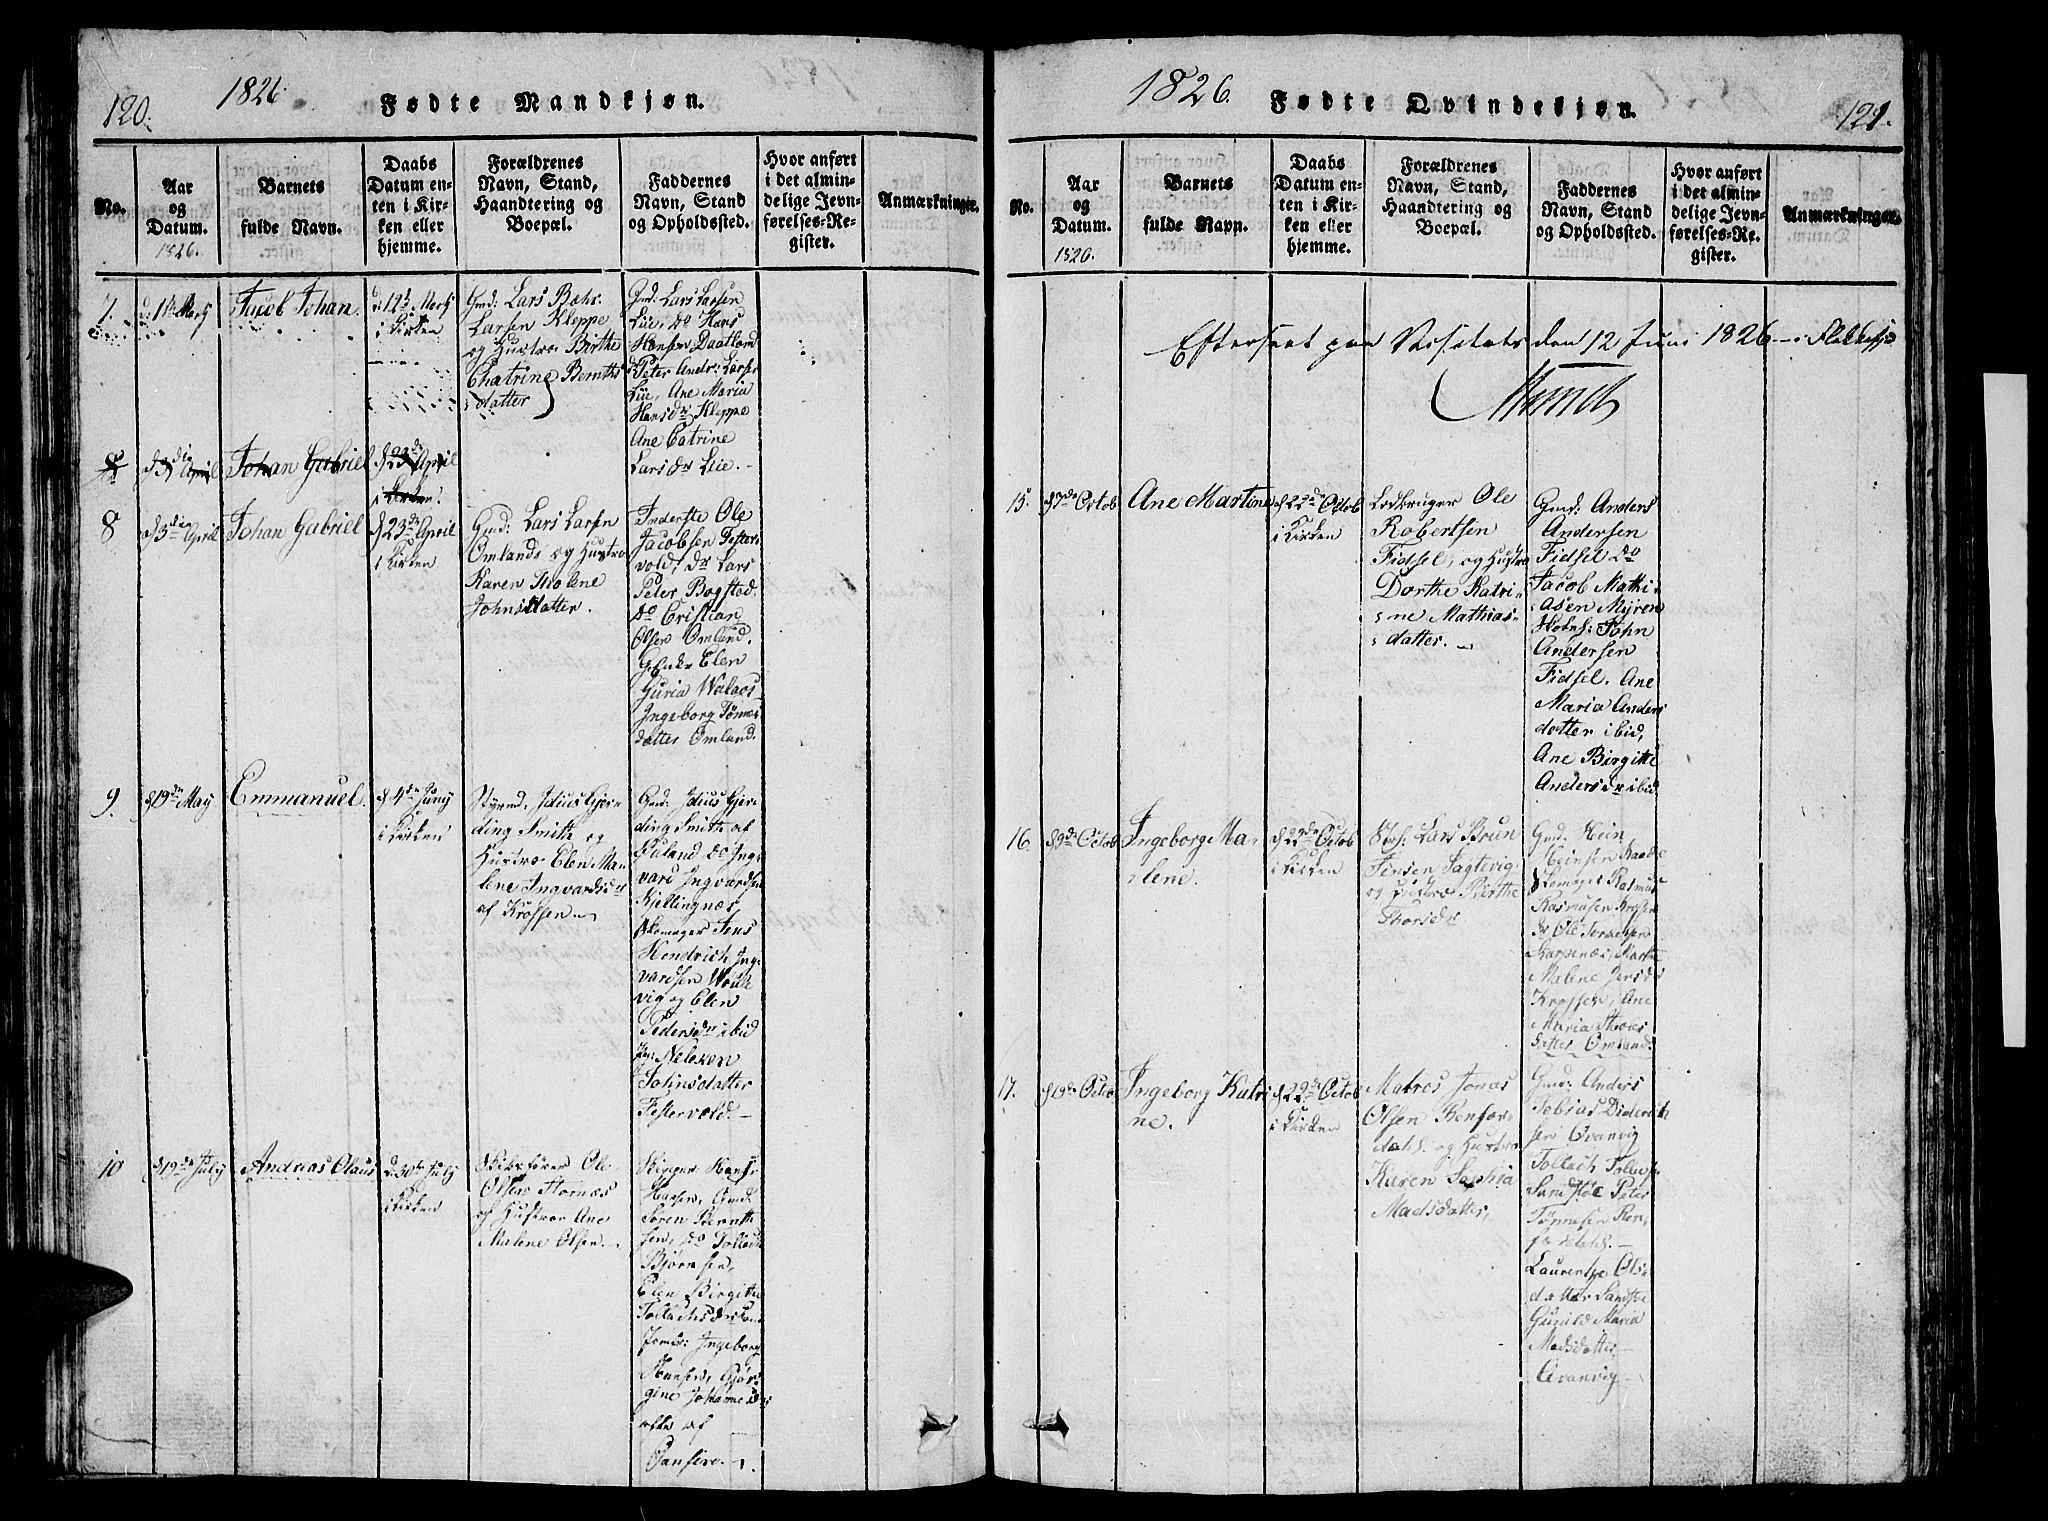 120.
1826.
Fødte Mandkjøn.
No.
Aar
og
Datum.
1826.
Barnets
fulde Navn.
Daabs
Datum en-
ten i Kir-
ken eller
hjemme.
Forældrenes
Navn, Stand,
Haandtering og
Boepæl.
Faddernes
Navn, Stand
og Opholdssted.
Hvor anført
i det almin-
delige Jevn-
førelses-Re-
gister.
Anmærkninger.
7.
Jacob Johan.
i Kirken
Gmd: Lars Bøhs.
Larsen Kleppe
og Hustroe Birthe
Chatrine Bernths
datter
Gmd: Lars Larsen
Liie, do Hans
Hansen Daatland
Peter Andr: Larsen
Liie, Ane Maria
Hansdr Kleppe
Ane Catrine
Larsdr Liie.
8
April
Johan Gabriel
d 23de April
i Kirken.
8
d 3die April
Johan Gabriel
d 23de April
i Kirken
Gmd: Lars Larsen
Omland og Hustro
Karen Tholene
Johnsdatter.
Ole
Jacobsen Fester-
vold, Lars
Peter Bogstad.
do Cristian
Olsen Omland.
Elen
Guria
Ingeborg Tønnes
datter Omland.
9.
d 19de May
Emmanuel.
d 4de Juny
i Kirken
Julius Gjer-
ding Smith og
Hustroe Elen Ma-
lene Ingvardsdr
af Krossen
Gmd: Julius Gjer
ding Smith af
do Ing-
vard Ingvardsen
Kjellingnæs
Skomager Jens
Hendrich Ing-
vardsen
vig og Elen
Pedersdr ibid
Johnsdatter
Festervold.
10
d 12de July
Andreas Olaus
d. 30te July
i Kirken
Skibsfører Ole
Olsen Stornæs
og Hustroe Ane
Malene Olsen.
Skipper Hans
Hansen, Gmd.
Søren Bernth
sen, do Tollach
Bjørnsen,
Elen Birgithe
Ingeborg
Hansen,
gine Johanne
af
1826.
Fødte Qvindekjøn.
121.
No.
Aar
og
Datum.
1826.
Barnets
fulde Navn.
Daabs
Datum en-
ten i Kir-
ken eller
hjemme.
Forældrenes
Navn, Stand,
Haandtering og
Boepæl.
Faddernes
Navn, Stand
og Opholdssted.
Hvor anført
i det almin-
delige Jevn-
førelses-Re-
gister.
Anmærkninger.
Efterseet paa Visitats den 12 Juni 1826 i Flekkefjd
Munch
15.
d 7de Octob
Ane Martine
d 22de Octob
i Kirken
Ole
Robertsen
Fidsel, og Hustro
Dorthe Katri-
ne Mathias-
datter.
Gmd: Anders
Andersen
Fidsel do
Jacob Mathi-
asen Myren
John
Andersen
Fidsel. Ane
Maria Anders
datter ibid,
Ane Birgitte
Andersdr ibid
16
d 9de Octob
Ingeborg Ma-
lene.
d 22de Octob
i Kirken
Lars Brun
Jensen
og Hustroe Birthe
Thorsdr
Gmd: Hein
Heinsen
Skomager Rasmus
Rasmusen Krossen
Ole
Karpenæs, Marthe
Malene Jensdr
Krossen, Ane
Maria Thores
datter Omland.
17.
d 19de Octob
Ingeborg Katri
ne.
d 22de Octob
i Kirken
Matros Jonas
Olsen Renfær-
dal. og Hustro
Karen Sophia
Madsdatter,
Gmd: Anders
Tobias Diderich
sen Qvanvig
Tollach
Peter
Tønnesen Ren-
Laurentze Ols-
datter
Gunilde Maria
Madsdatter
Qvanvig